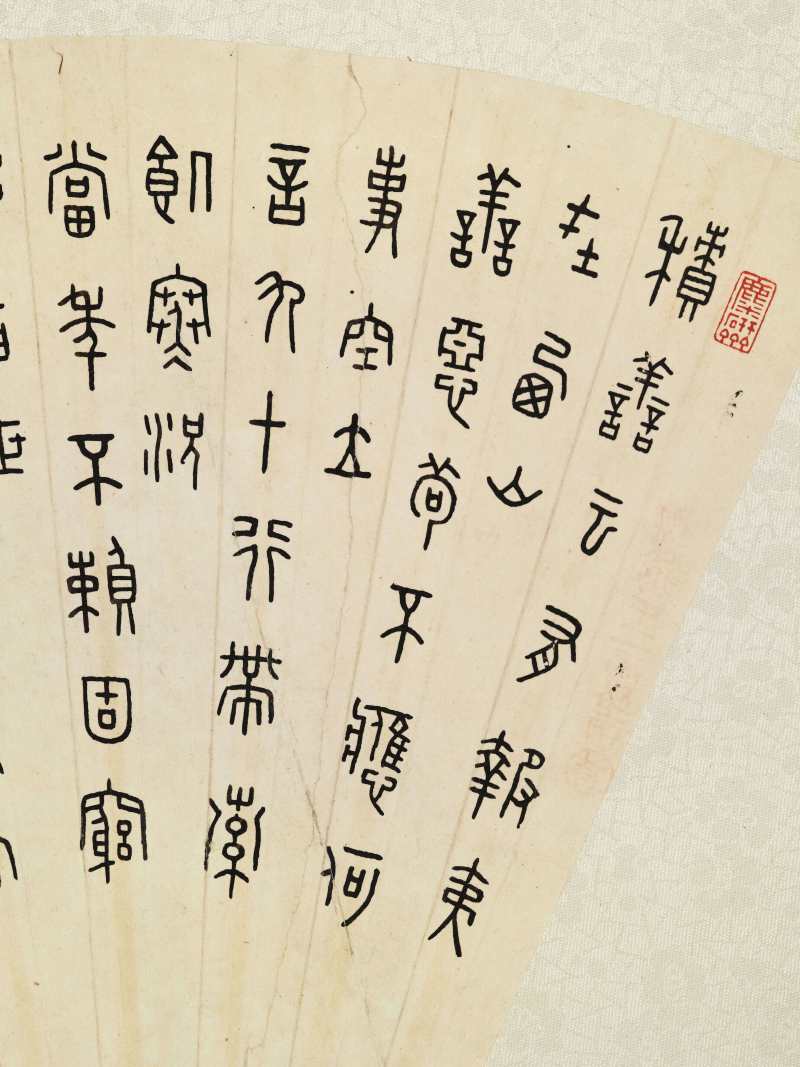 麋研齋
積善云有報夷
在西山
善惡苟不應何
事空立
言九十行帶索
飢寒況
當年不賴固窮